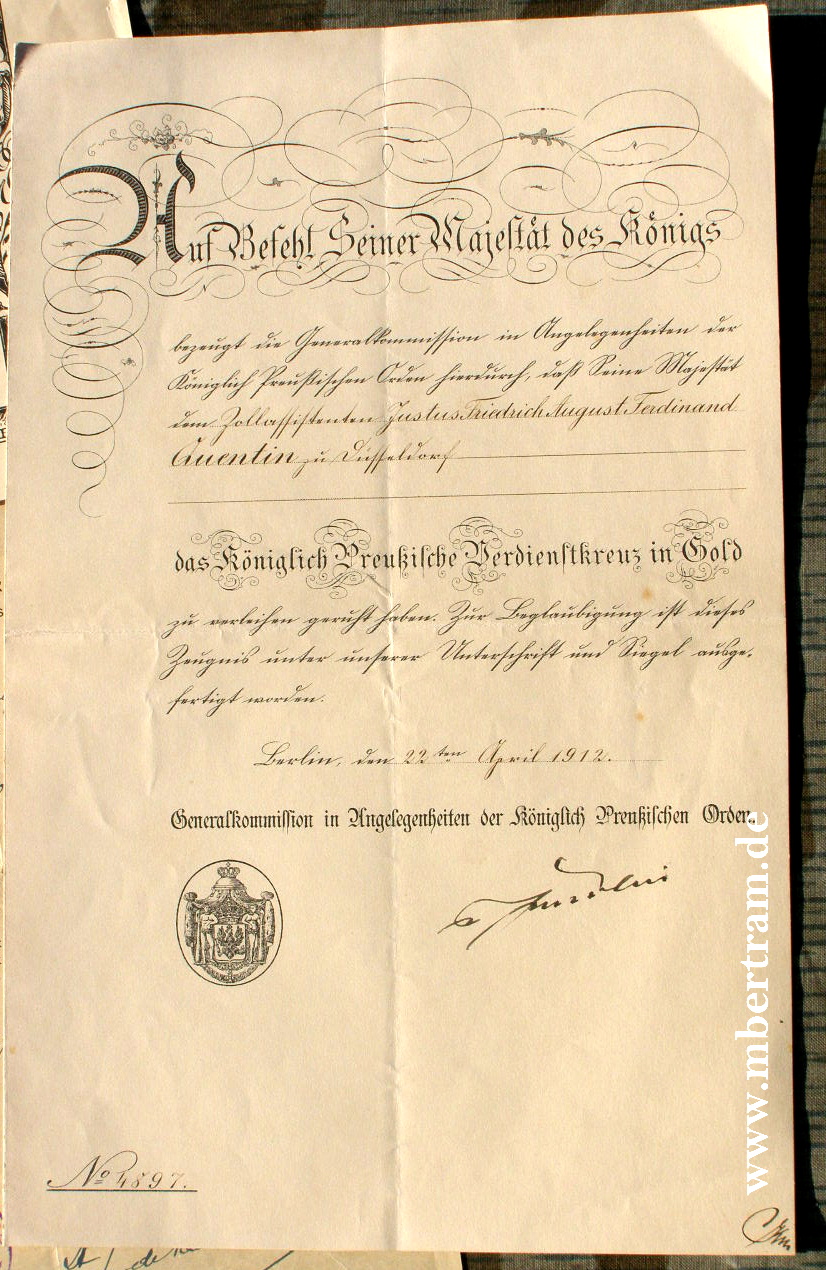 Auf Befehl Seiner Majestät des Königs
bezeugt die Generalkommission in Angelegenheiten der
Königlich Preußischen Orden hierdurch, daß Seine Majestät
dem Zollassistenten Justus Friedrich August Ferdinand
Quentin zu Düsseldorf
das Königlich Preußische Verdienstkreuz in Gold
zu verleihen geruht haben. Zur Beglaubigung ist dieses
Zeugnis unter unserer Unterschrift und Siegel ausge-
fertigt worden.
Berlin, den 22ten April 1912.
Generalkommission in Angelegenheiten der Königlich Preußischen Orden.
No 4897.
www.mbertram.de